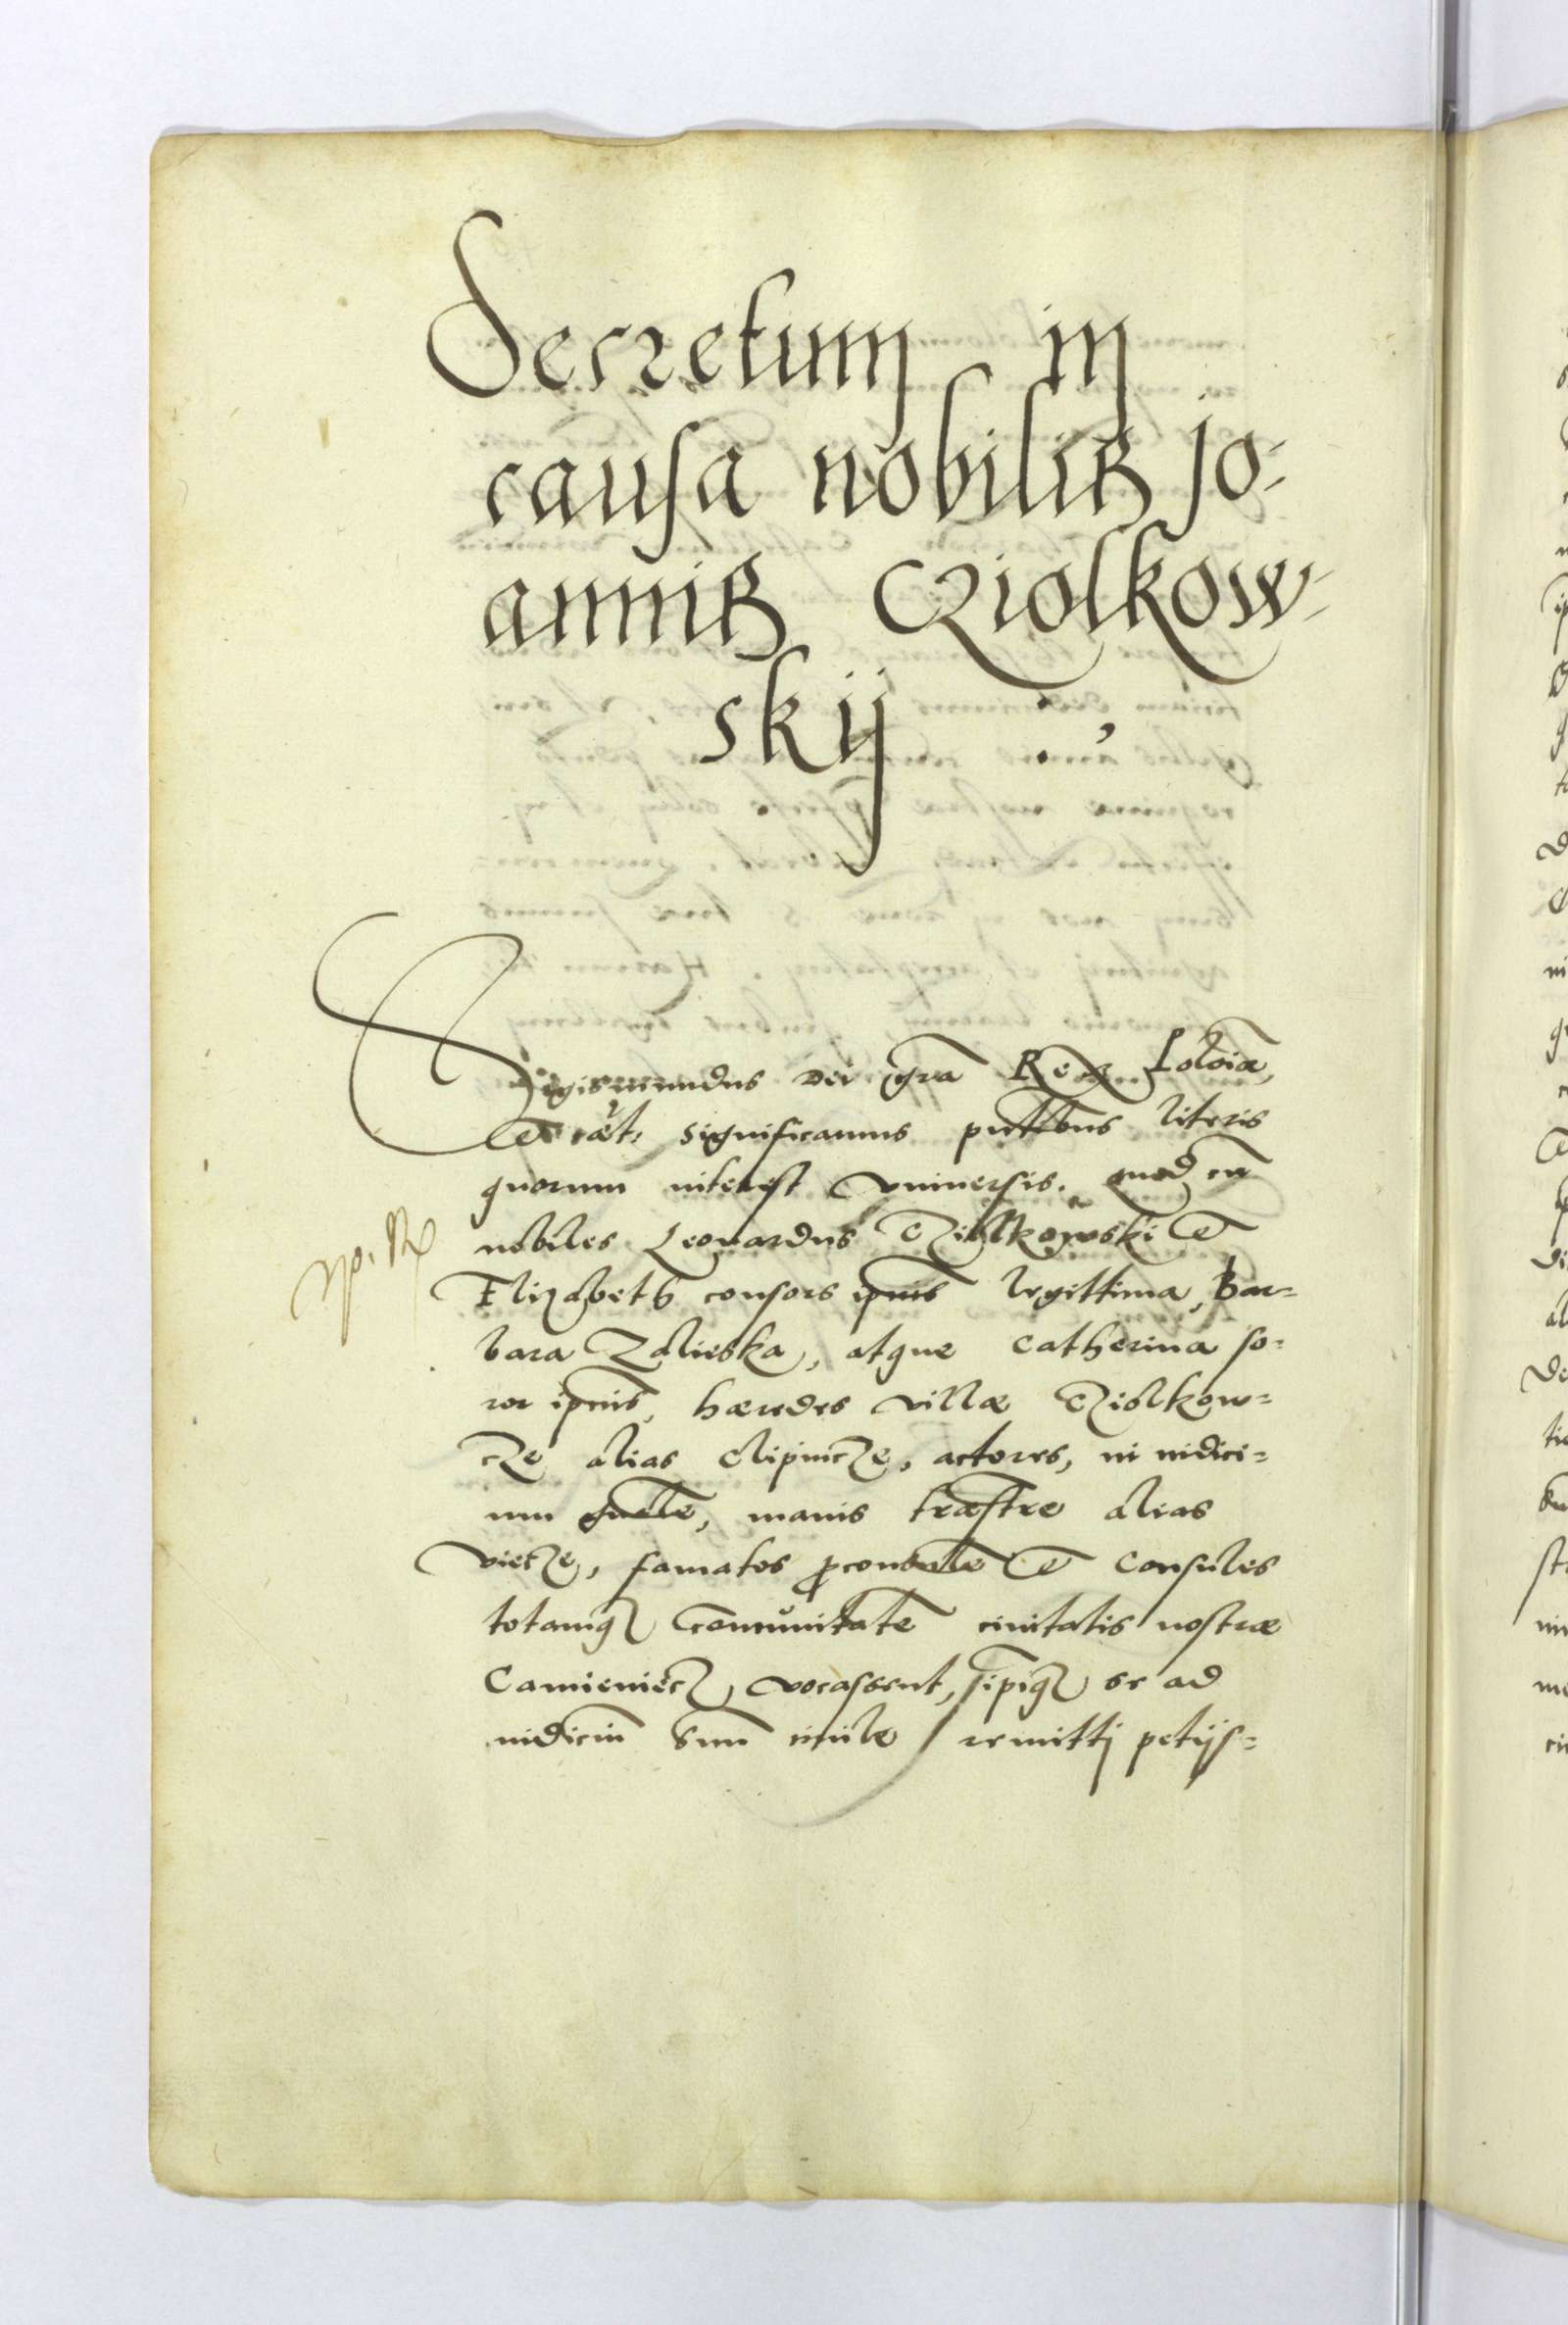 Decretum in
causa nobilis Jo-
annis Cziolkow-
skij
Sigismundus Dei gra Rex Poloiæ
et cæt: significamus pntibus literis
quorum interest vniuersis. quod cu
nobiles Leonardus Cziolkowski et
Elizabeth consors ipius legittima, Bar-
bara Zalieska, atque Catherina so-
ror ipius, hæredes villæ Cziolkow-
cze alias Clipnicze, actores, in iudici-
um gnale, alias
vietze, famatos pconsule et Consules
totamq comunitate ciuitatis nostræ
Camieniecz vocassent, ipiq se ad
iudiciu suu ciuile remittj petijs-